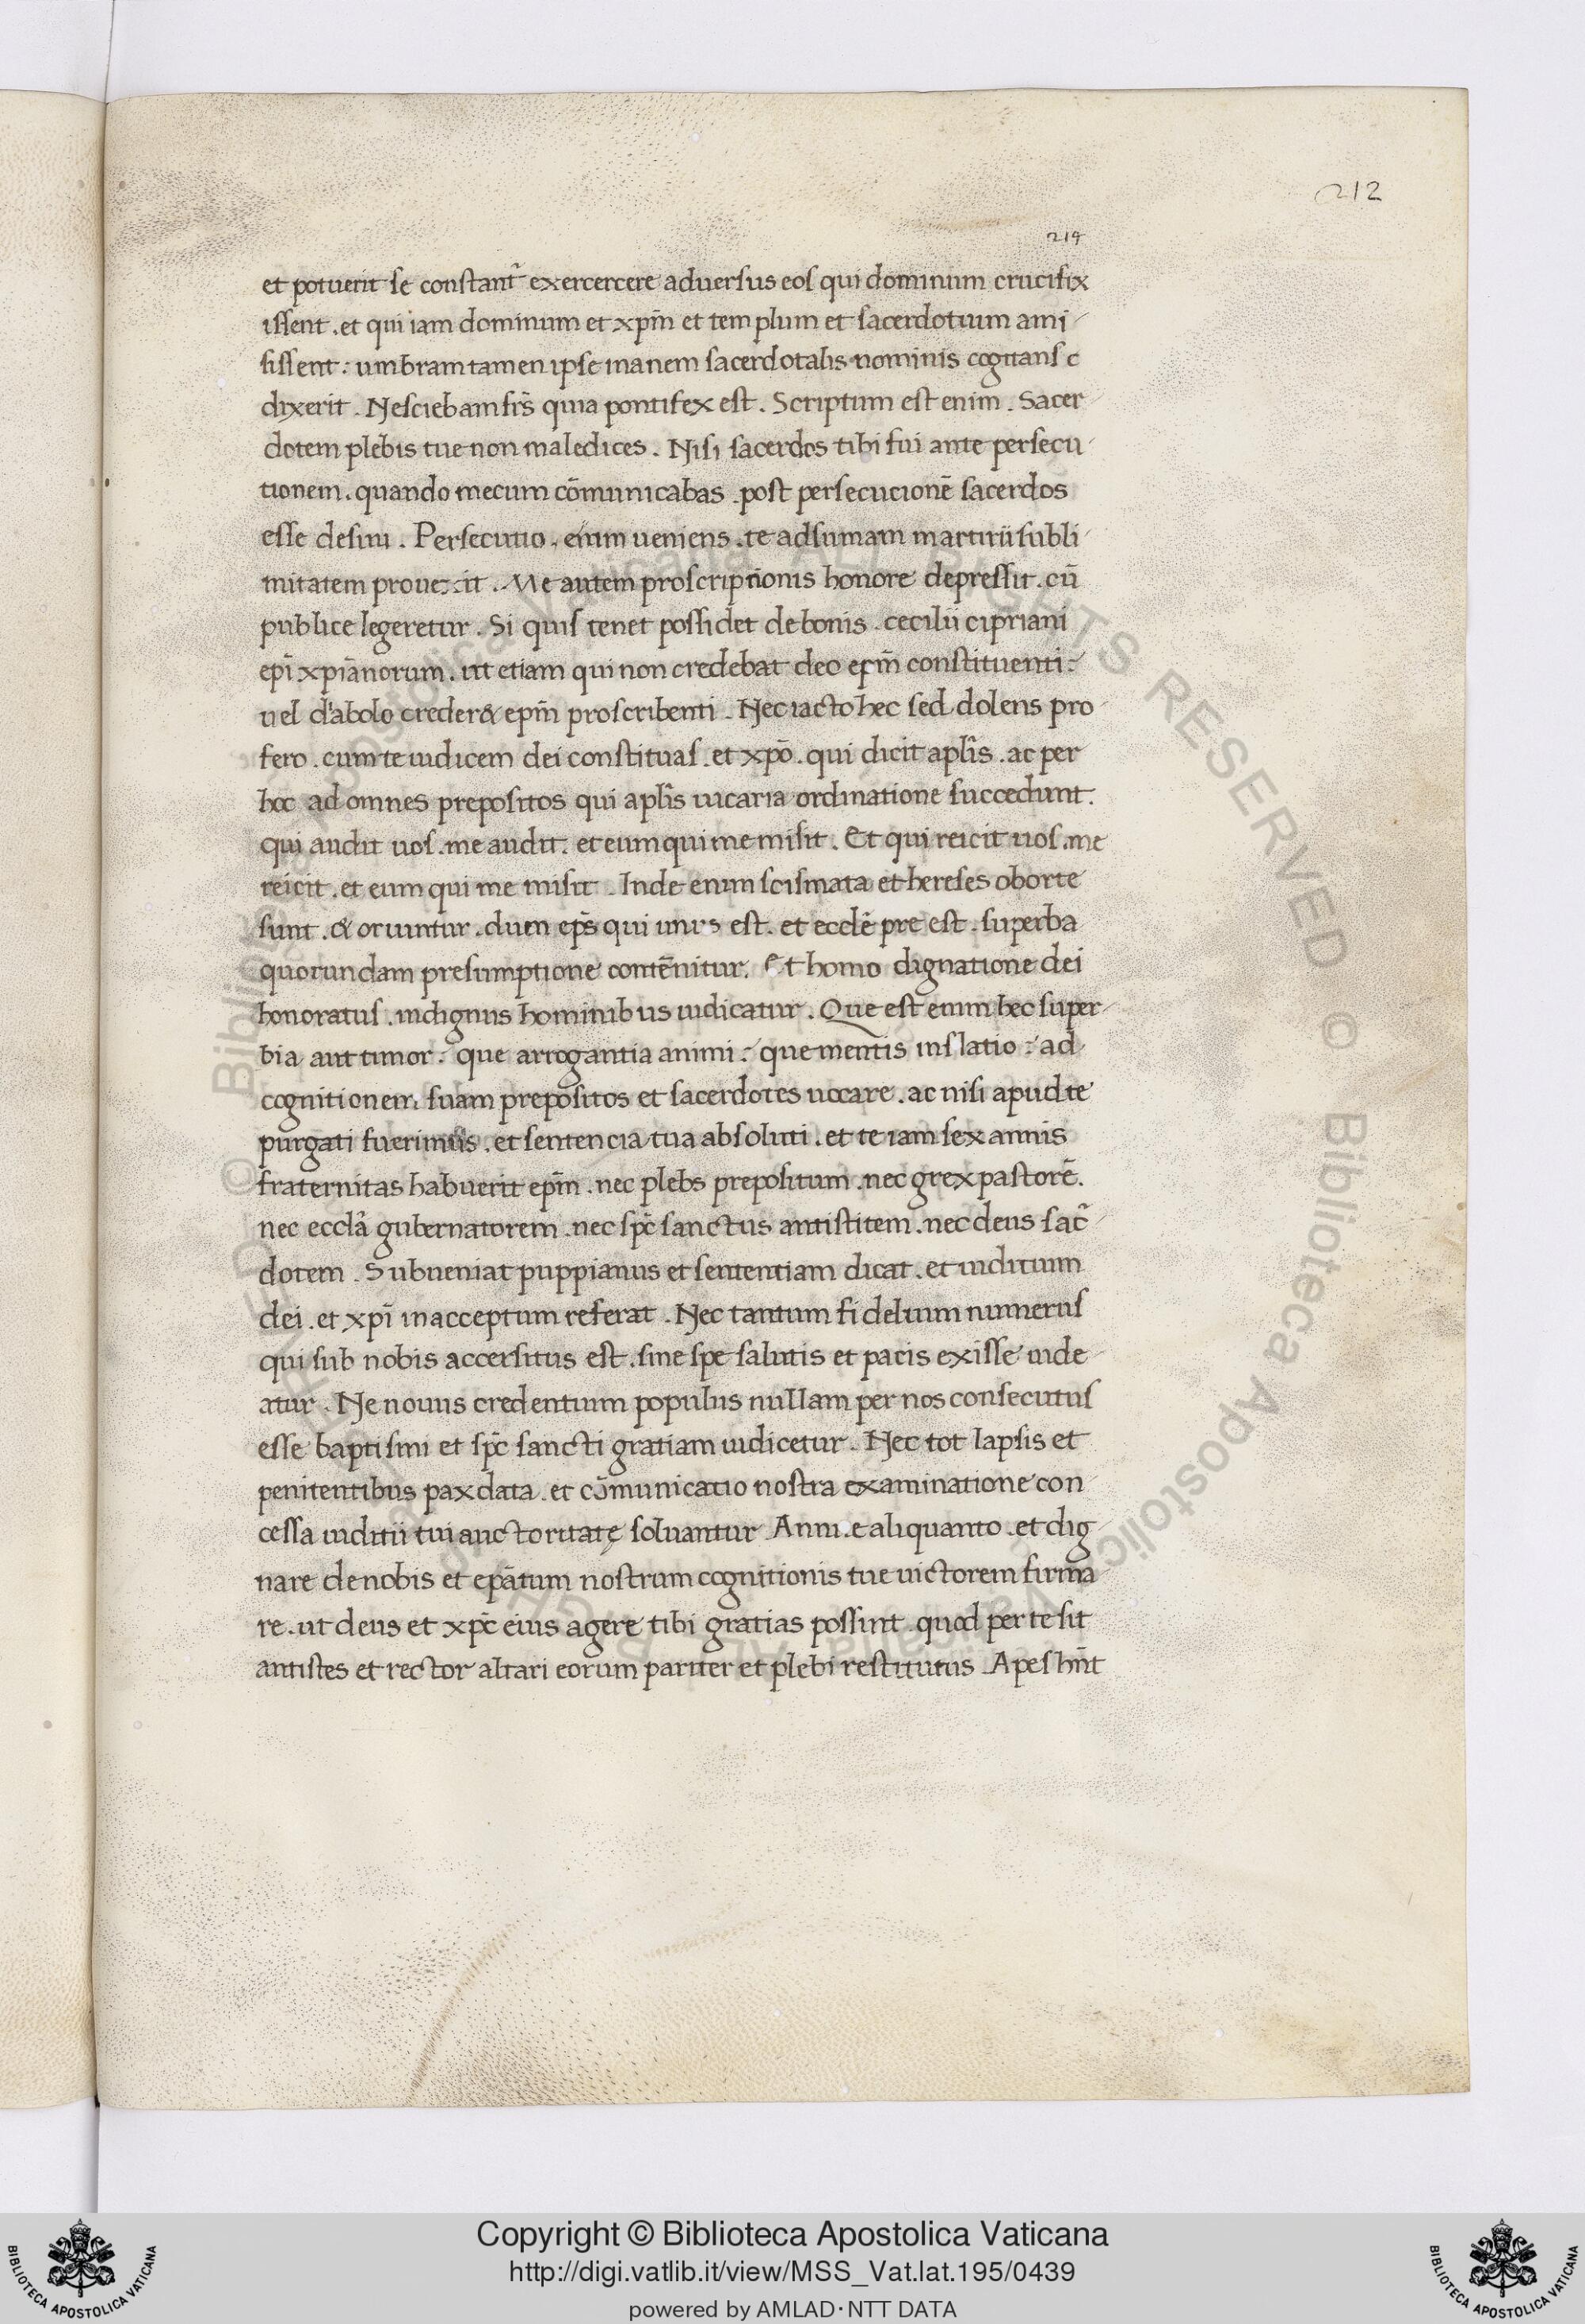 212
214
et potuerit se constant̄ exercercere aduersus eos qui dominum crucifix
issent . et qui iam dominum et xp̄m et templum et sacerdotium ami-
sissent : umbram tamen ipse inanem sacerdotalis nominis cogitans
dixerit . Nesciebam frs̄ quia pontifex est . Scriptum est enim . Sacer-
dotem plebis tue non maledices . Nisi sacerdos tibi fui ante persecu-
tionem . quando mecum cōmunicabas . post persecucionē sacerdos
esse desini . Persecutio . enim ueniens . te ad sumam martirii subli-
mitatem prouexit . Me autem proscriptionis honore depressit . cū
publice legeretur . Si quis tenet possidet de bonis . cecilii cipriani
ep̄i xp̄ianorum . ut etiam qui non credebat deo ep̄m constituenti :
uel diabolo creder& ep̄m proscribenti . Nec iacto hec sed dolens pro-
fero . cum te iudicem dei constituas . et xp̄o . qui dicit apl̄is . ac per
hoc ad omnes prepositos qui apl̄is uicaria ordinatione succedunt .
qui audit uos . me audit . et eum qui me misit . Et qui reicit uos . me
reicit . et eum qui me misit . Inde enim scismata et hereses oborte
sunt . & oriuntur . dum ep̄s qui unus est . et eccl̄e pre est . superba
quorundam presumptione contēnitur . Et homo dignatione dei
honoratus . indignus hominibus iudicatur . Que est enim hec super-
bia aut timor : que arrogantia animi : que mentis inflatio : ad
cognitionem suam prepositos et sacerdotes uocare . ac nisi apud te
purgati fuerimus . et sentencia tua absoluti . et te iam sex annis
fraternitas habuerit ep̄m . nec plebs prepositum . nec grex pastorē .
nec eccl̄a gubernatorem . nec sp̄c sanctus antistitem . nec deus sac̄-
dotem . Subueniat puppianus et sententiam dicat . et iuditium
dei . et xp̄i in acceptum referat . Nec tantum fidelium numerus
qui sub nobis accersitus est . sine spe salutis et pacis exisse uide-
atur . Ne nouus credentium populus nullam per nos consecutus
esse baptismi et sp̄c sancti gratiam iudicetur . Nec tot lapsis et
penitentibus pax data . et cōmunicatio nostra examinatione con-
cessa iuditii tui auctoritatę soluantur . Annue aliquanto . et dig-
nare de nobis et ep̄atum nostrum cognitionis tue uictorem firma-
re . ut deus et xp̄c eius agere tibi gratias possint . quod per te sit
antistes et rector altari eorum pariter et plebi restitutus . Apes hn̄t
Copyright © Biblioteca Apostolica Vaticana
http://digi.vatlib.it/view/MSS_Vat.lat.195/0439
powered by AMLAD·NTT DATA